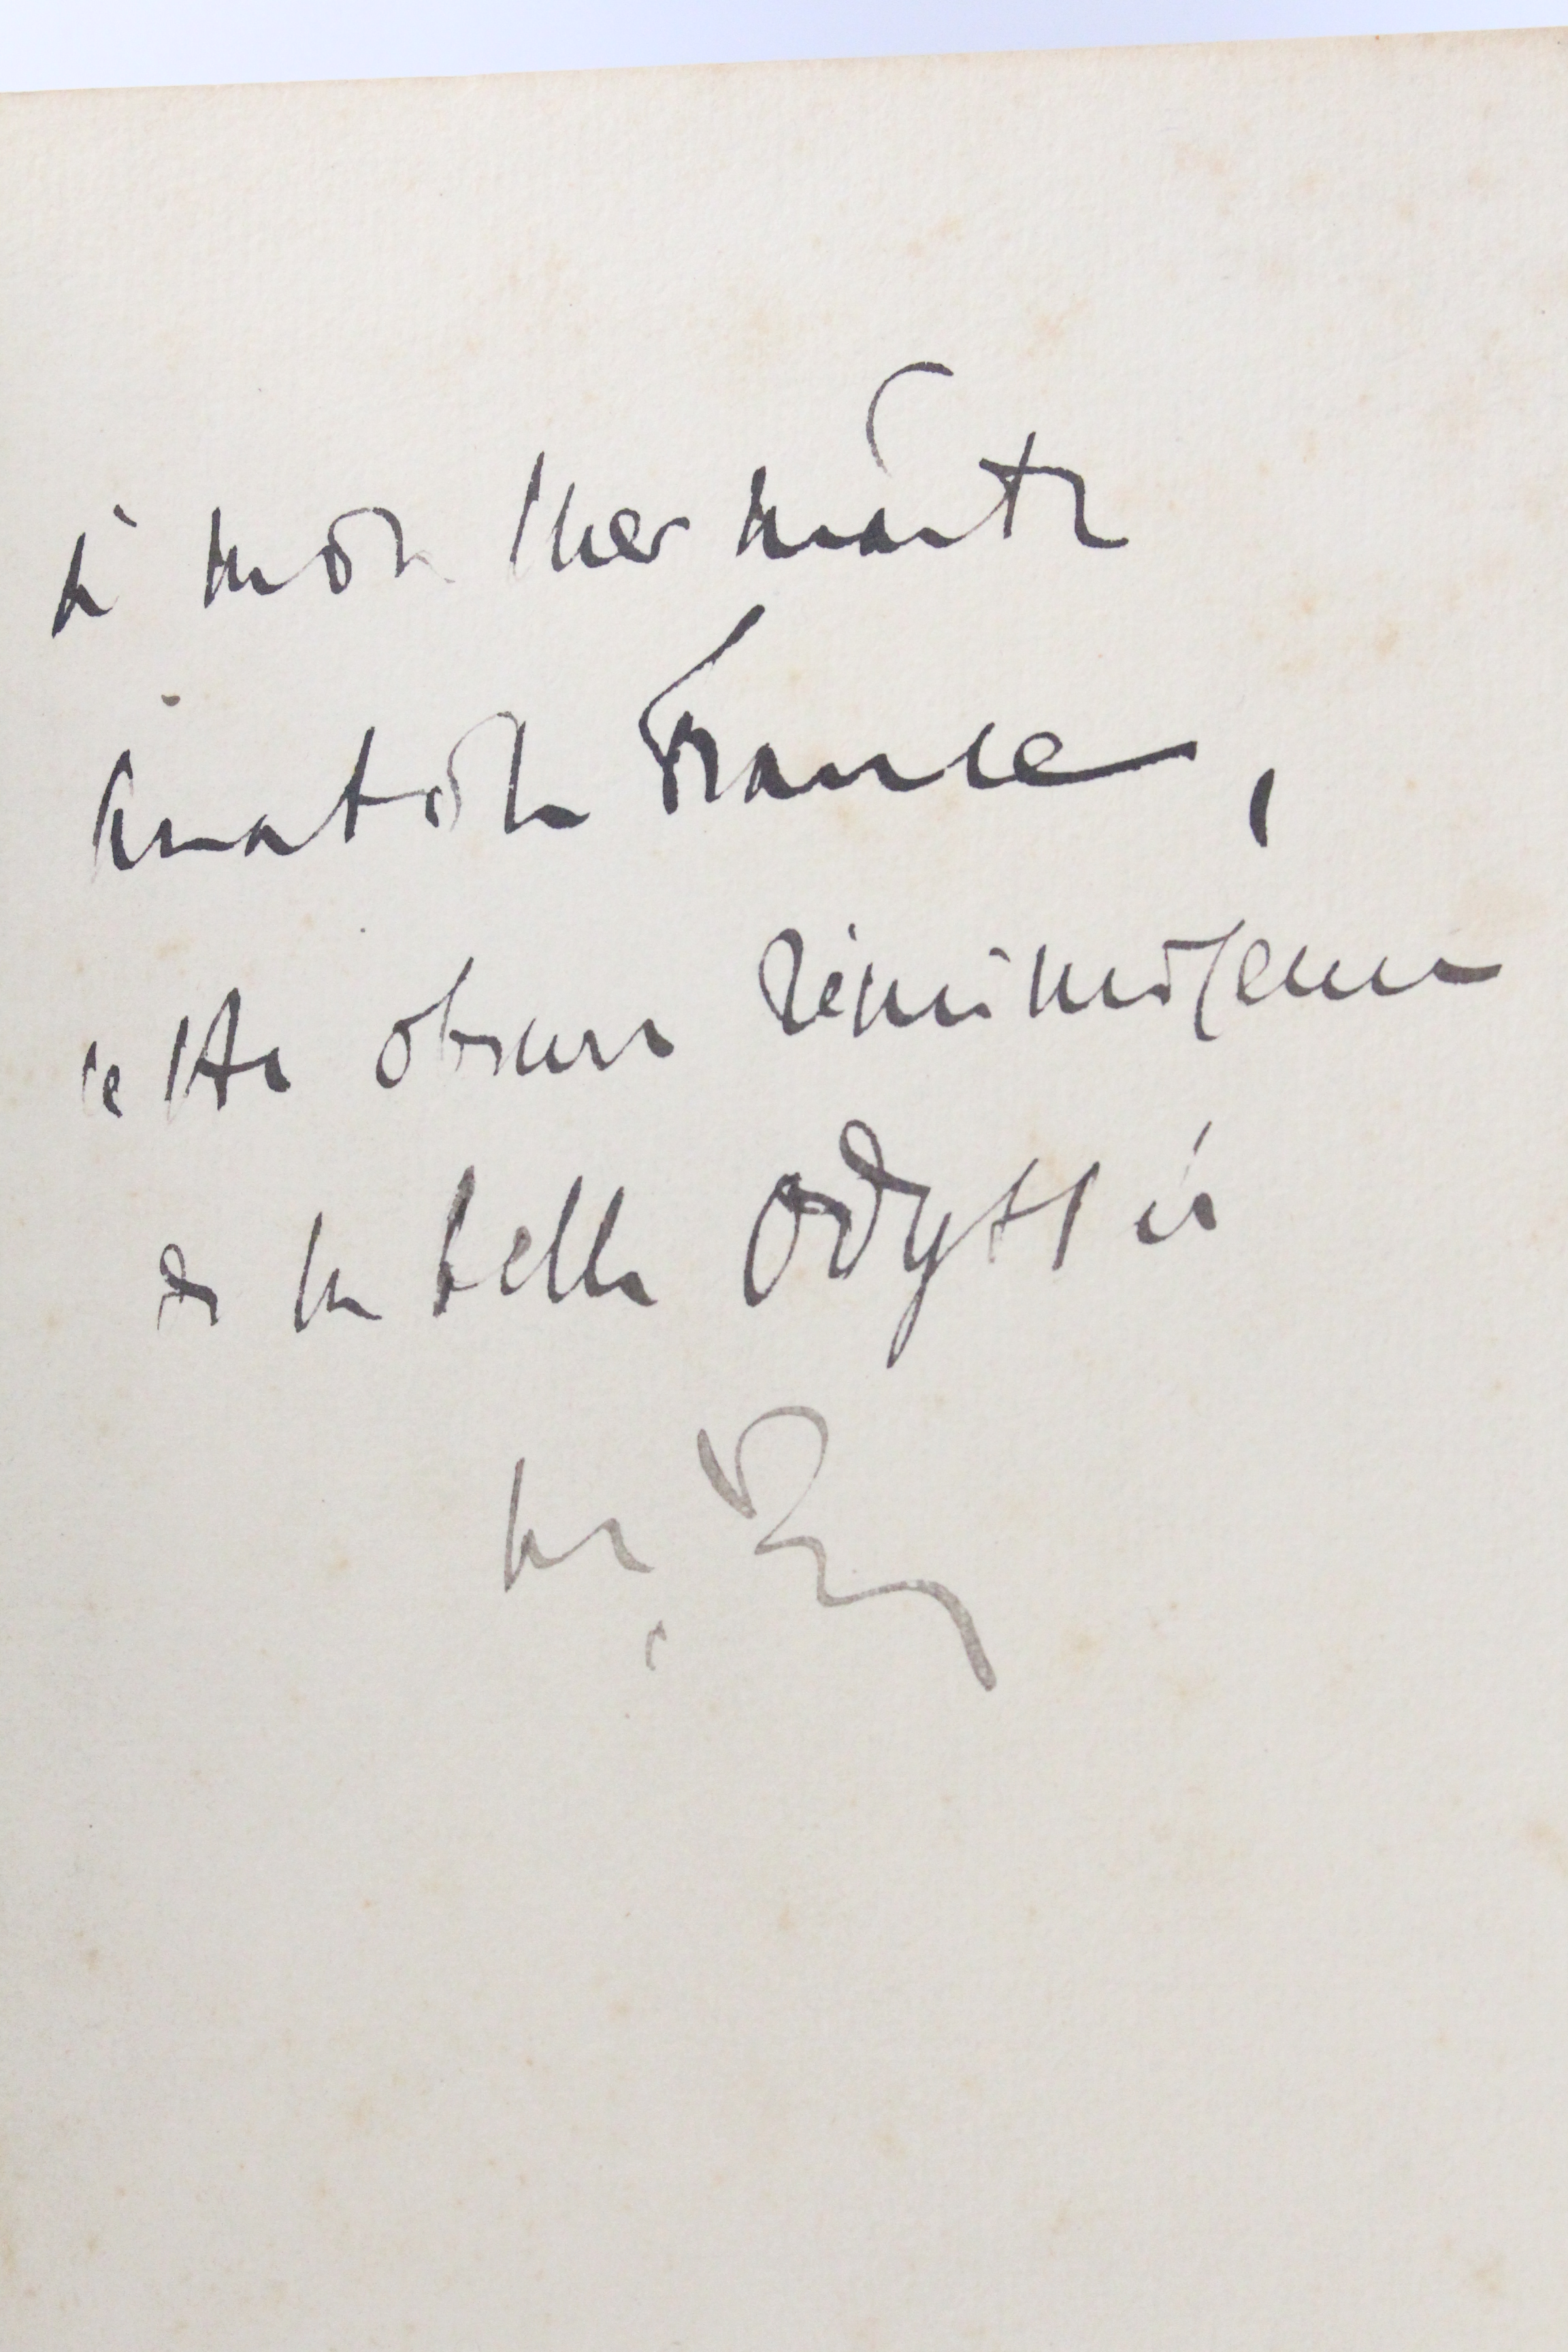 à mon cher maître
Anatole France,
cette obscure réminiscence
de la belle Odyssée